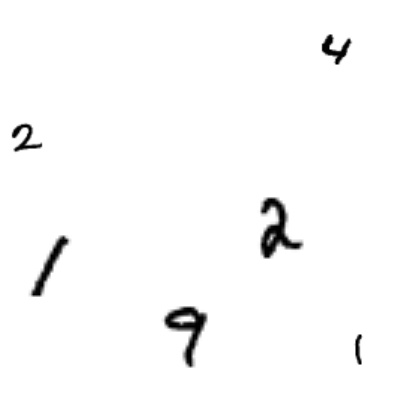 4
2
2
1
9
1